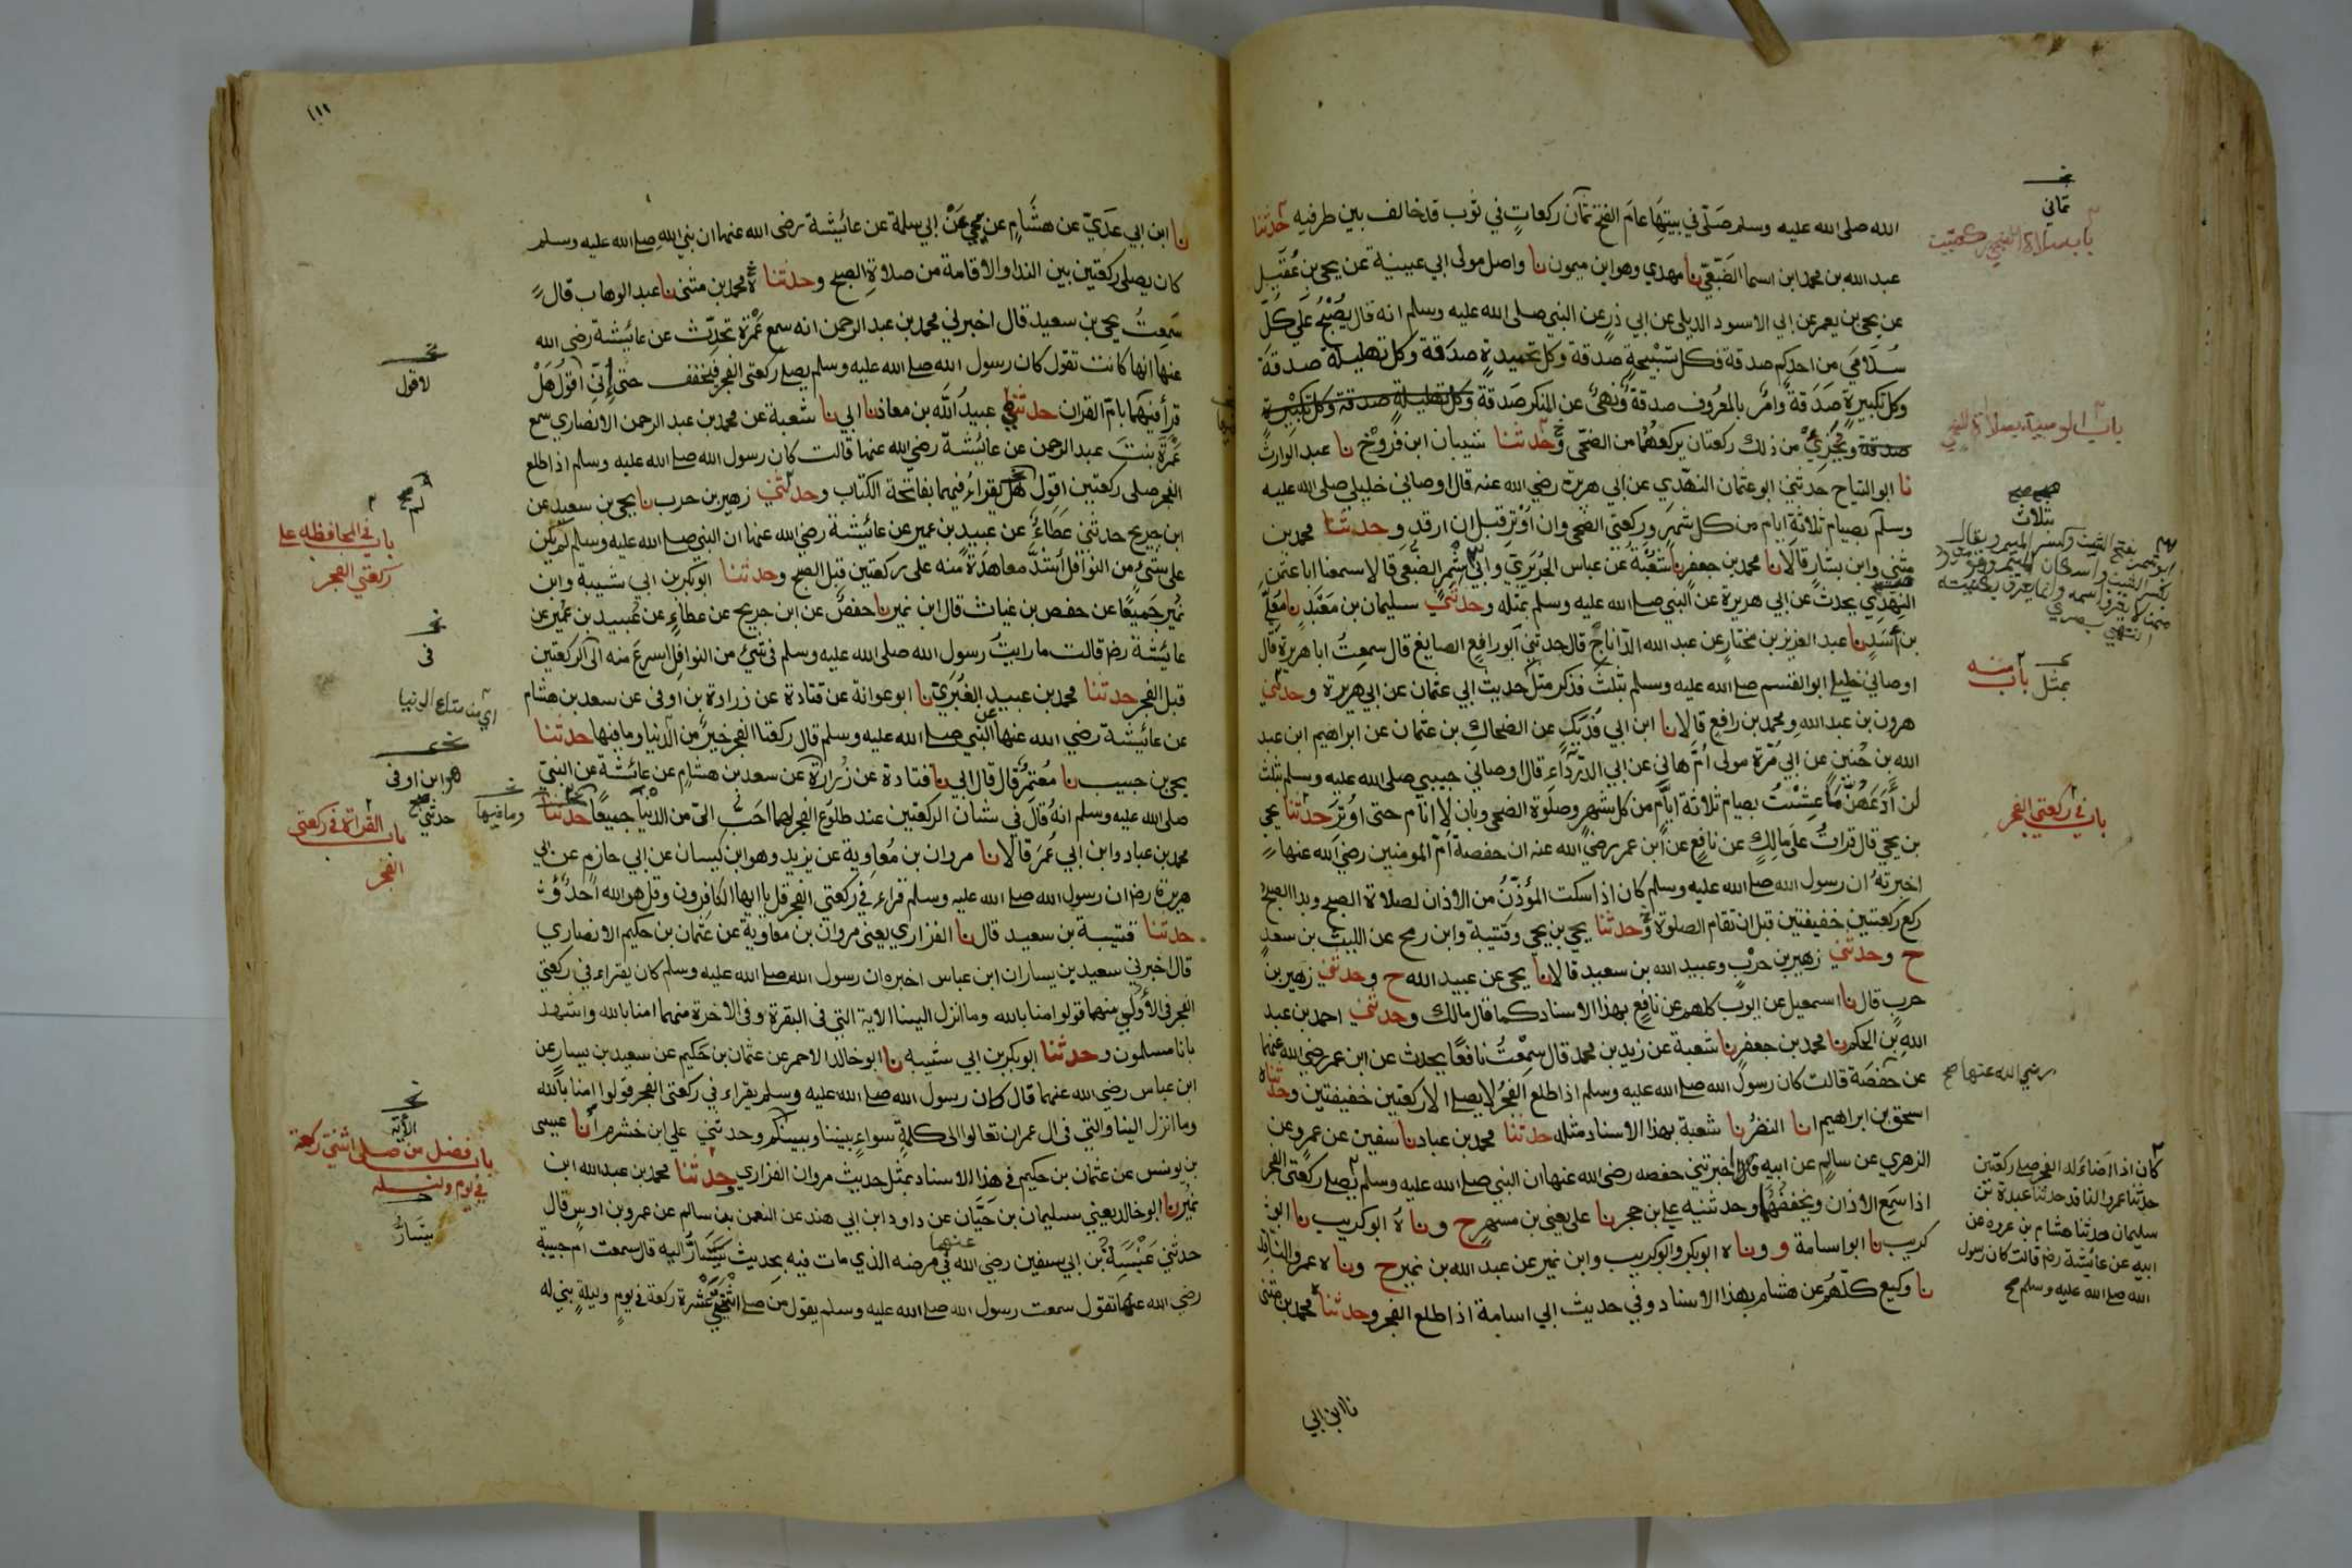 الله صلى الله عليه وسلم صَلّى في بيتِهَا عامَ الفتح ثمان ركعاتٍ في ثوب قد خالف بين طرفيه حدثنا
عبد الله بن محمد ابن اسما الضَبَعِيّ نا مهدي وهو ابن ميمون نا واصل مولى ابي عيينة عن يحيى بن عُقَيل
عن يحيى بن يعمر عن ابي الاسود الديلي عن ابي ذرٍ عن النبي صلى الله عليه وسلم انه قال يُصْبِحُ عَلى كُلّ
سُلَامَى من احدكم صدقة فكل تَسْبيحةٍ صدقة وكل تحميدةٍ صدَقة وكل تهليلة صدقة
وكل تكبيرةٍ صَدَقةٌ وامرٌ بالمعُروف صدقة ونهيٌ عن المنكر صَدقة وكل تهليلةٍ صدقة وكل تكبيرة
صدقة ويُجْزِيُ من ذلك ركعتان يركعهُمَا من الضحى وحدثنا شيبان ابن فَرُّوْخ نا عبد الوارث
نا ابو التياح حدثني ابو عثمان النهْدي عن ابي هريرة رضي الله عنه قال اوصاني خليلي صلى الله عليه
وسلم بصيام ثلاثةِ ايام من كل شهرٍ وركعتي الضحى وان اوْتِر قبل ان ارقد وحدثنا محمد بن
مثنى وابن بشارٍ قالَا نا محمد بن جعفر نا شُعْبَة عن عباس الجُرَيري وابي شِمْر الضُّبَعي قالا سمعنا ابا عثمٰن
النهدي يحدث عن ابي هريرة عن النبي صلى الله عليه وسلم بمثله وحدثني سليمان بن مَعْبَدٍ نا مُعَلّى
بن اَسَدٍ نا عبد العزيز بن مختارٍ عن عبد الله الدّاناج قال حدثني ابو رافع الصايغ قال سمعتُ ابا هريرة قال
اوصاني خليلي ابو القسم صلى الله عليه وسلم بثلثٍ فذكر مثلَ حديث ابي عثمان عن ابي هريرة وحدثني
هرون بن عبد الله ومحمد بن رافع قالا نا ابن ابي فُدَيكٍ عن الضحاكِ بن عثمان عن ابراهيم ابن عبد
الله بن حُنَين عن ابي مُرّة مولى امّ هاني عن ابي الدّردَاء قال اوصاني حبيبي صلى الله عليه وسلم بثلث
لن اَدَعَهُنَّ مَا عِشْتُ بصيام ثلاثة ايَّام من كل شهرٍ وصلوة الضحى وبان لا انام حتى اوُترَ حدثنا يحيى
بن يحيى قال قراتُ على مالِكٍ عن نافعٍ عن ابن عمر رضي الله عنه ان حفصة امّ المومنين رضي الله عنها
اخبرتهُ ان رسول الله صلى الله عليه وسلم كان اذا سكت المؤذّنُ من الاذان لصلاة الصبح وبدا الصبح
ركع ركعتين خفيفتين قبل ان تقام الصلوة وحدثنا يحيى بن يحيى وقتيبة وابن رمح عن الليث بن سعدٍ
ح وحدثني زهير بن حرْبٍ وعبيد الله بن سعيد قالا نا يحيى عن عبيد الله ح وحدثني زهير بن
حرب قال نا اسمعيل عن ايوب كلهم عن نافعٍ بهذا الاسناد كما قال مالك وحدثني احمد بن عبد
اللهِ بن الحكم نا محمد بن جعفرٍ نا شعبة عن زيد بن محمد قال سمعْتُ نافعًا يحدث عن ابن عمر رضي الله عنهما
عن حَفصَة قالت كان رسول الله صلى الله عليه وسلم اذا طلع الفجرُ لا يصلي الا ركعتين خفيفتين وحدثناه
اسحق بن ابراهيم انا النضرُ نا شعبة بهذا الاسناد مثله حدثنا محمد بن عباد نا سفين عن عمروٍ عن
الزهري عن سالمٍ عن ابيه قال اخبرتني حفصه رضي الله عنها ان النبي صلى الله عليه وسلم يصلي ركعتي الفجر
اذا سَمِعَ الاذان ويخففُهُمَا وحدثنيه علي بن حجر نا علي يعني بن مسهرٍ ح ونا ه ابو كريب نا ابو
كريب نا ابو اسامة و ونا ه ابو بكر وابو كريب وابن نمير عن عبد الله بن نميرٍ ح ونا ه عمرو الناقد
نا وكيع كلّهُم عن هشام بهذا الاسناد وفي حديث ابي اسامة اذا طلع الفجر وحدثنا محمد بن مثنى
نا ابن ابي
ثماني
باب صلاة الضحى ركعتين
باب الوصية بصلاة الضحى
صح صح
بثلاث
بمثل
باب منه
باب في ركعتي الفجر
رضي الله عنها صح
كان اذا اضاء له الفجر صلى ركعتين
حدثنا عمرو الناقد حدثنا عبدة بن
سليمان حدثنا هشام بن عروه عن
ابيه عن عائشة رضـ قالت كان رسول
الله صلى الله عليه وسلم صح
١١١
نا ابن ابي عَديّ عن هشَامٍ عن يحيى عَنْ ابي سلمة عن عائشة رضى الله عنها ان نبي الله صلى الله عليه وسلم
كان يصلى ركعتين بين الندا والاقامة من صلاةِ الصبح وحدثنا محمد بن مثنى نا عبد الوهاب قال
سَمِعتُ يحيى بن سعيد قال اخبرني محمد بن عبد الرحمن انه سمع عَمْرة تحدّث عن عائشة رضي الله
عنها انها كانت تقول كان رسول الله صلى الله عليه وسلم يصلي ركعتى الفجر فيُخفف حتى اِنّي اقولَ هَلْ
قرأ فيهما بامّ القران حدثني عبيدُ الله بن معاذ نا ابي نا شعبة عن محمد بن عبد الرحمن الانصاري سمع
عَمْرَةَ بنتَ عبد الرحمن عن عائشة رضي الله عنها قالت كان رسول الله صلى الله عليه وسلم اذا طلع
الفجر صلى ركعتين اقول هَل يقراء فيهما بفاتحة الكتاب وحدثني زهير بن حرب نا يحيى بن سعيد عن
ابن جريج حدثنى عَطَاءٌ عن عبيد بن عمير عن عائشة رضي الله عنها ان النبي صلى الله عليه وسلم لم يكن
على شيءٍ من النوافل اشدَّ معاهَدَةً منه على ركعتين قبل الصبح وحدثنا ابو بكر بن ابي شيبة وابن
نُمير جَميعًا عن حفص بن غياث قال ابن نمير نا حفصٌ عن ابن جريج عن عطاءٍ عن عُبيد بن عُمير عن
عائشة رضـ قالت ما رايتُ رسول الله صلى الله عليه وسلم في شيءٍ من النوافل اسرعَ منه الى الركعتين
قبل الفجر حدثنا محمد بن عبيد الغُبَرِيّ نا ابو عوانة عن قتادة عن زرارة بن اوفى عن سعد بن هشام
عن عائشة رضي الله عنها عن النبي صلى الله عليه وسلم قال ركعتا الفجر خيرٌ من الدنيا وما فيها حدثنا
يحيى بن حبيب نا مُعتمرٌ قال قال ابي نا قتادة عن زُرارة عن سعد بن هشامٍ عن عائشة عن النبيّ
صلى الله عليه وسلم انهُ قالَ في شان الركعتين عند طلوع الفجر لهما احَب الىّ من الدنيا جميعًا حدثنا
محمد بن عباد وابن ابي عُمَر قالَا نا مروان بن مُعاوية عن يزيد وهو ابن كيسان عن ابي حازمٍ عن ابي
هريرة رضـ ان رسول الله صلى الله عليه وسلم قراء في ركعتى الفجر قل يا ايها الكافرون وقل هو الله احدٌ
حدثنا قتيبة بن سعيد قال نا الفزاري يعني مروان بن معاوية عن عثمان بن حكيم الانصاري
قال اخبرني سعيد بن يسار ان ابن عباس اخبره ان رسول الله صلى الله عليه وسلم كان يقراء في ركعتي
الفجر في الأولى منهما قولوا امنا بالله وما انزل الينا الاية التي في البقرة وفي الاخرة منهما امنا بالله واشهد
بانا مسلمون وحدثنا ابو بكر بن ابي شيبه نا ابو خالد الاحمر عن عثمان بن حكيم عن سعيد بن يسارٍ عن
ابن عباس رضي الله عنهما قال كان رسول الله صلى الله عليه وسلم يقراء في ركعتى الفجر قولوا امنا بالله
وما انزل الينا والتي في ال عمران تعالوا الى كلمةٍ سواءٍ بيننا وبينكم وحدثني علي ابن خشرم أنا عيسى
بن يونس عن عثمان بن حكيم في هذا الاسناد بمثل حديث مروان الفزاري وحدثنا محمد بن عبد الله ابن
نُميرٍ نا ابو خالد يعني سليمان بن حَيَّان عن داود ابن ابي هند عن النعمن بن سالم عن عمرو بن اوسٍ قال
حدثني عَنْبَسَةُ بن ابي سفين رضي الله عنهما في مرضه الذي مات فيه بحديث يَتَسَارُّ اليه قال سمعت ام حبيبة
رضي الله عنها تقول سمعت رسول الله صلى الله عليه وسلم يقول من صلى اثنتي عَشْرة ركعة في يومٍ وليلةٍ بني له
لاقول
باب في المحافظه على
ركعتي الفجر
في
اي من متاع الدنيا
هو ابن اوفى
حدثني صح
وما فيها
باب القراة في ركعتي
الفجر
الأية
باب فضل من صلى اثنتي ركعة
في يوم وليله
يتسارُّ